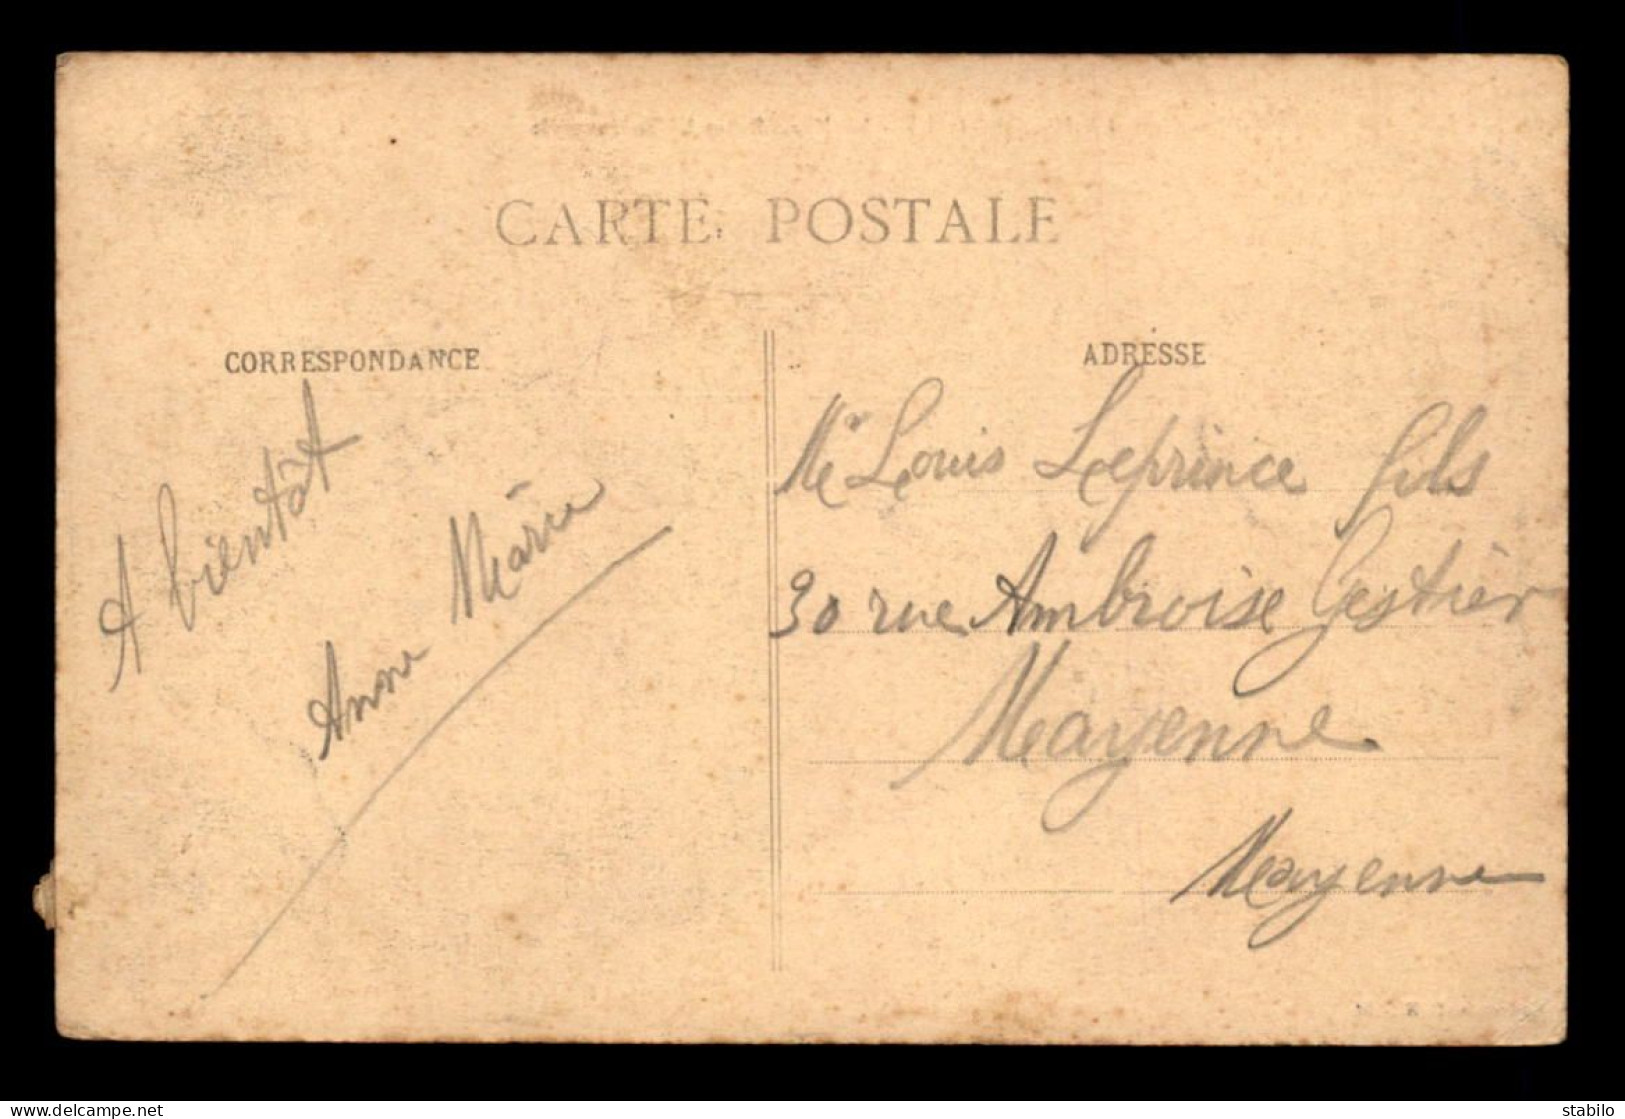 CARTE POSTALE
CORRESPONDANCE
A bientôt
Anne Marie
ADRESSE
Mr Louis Leprince fils
30 rue Ambroise Gestier
Mayenne
Mayenne
stabilo